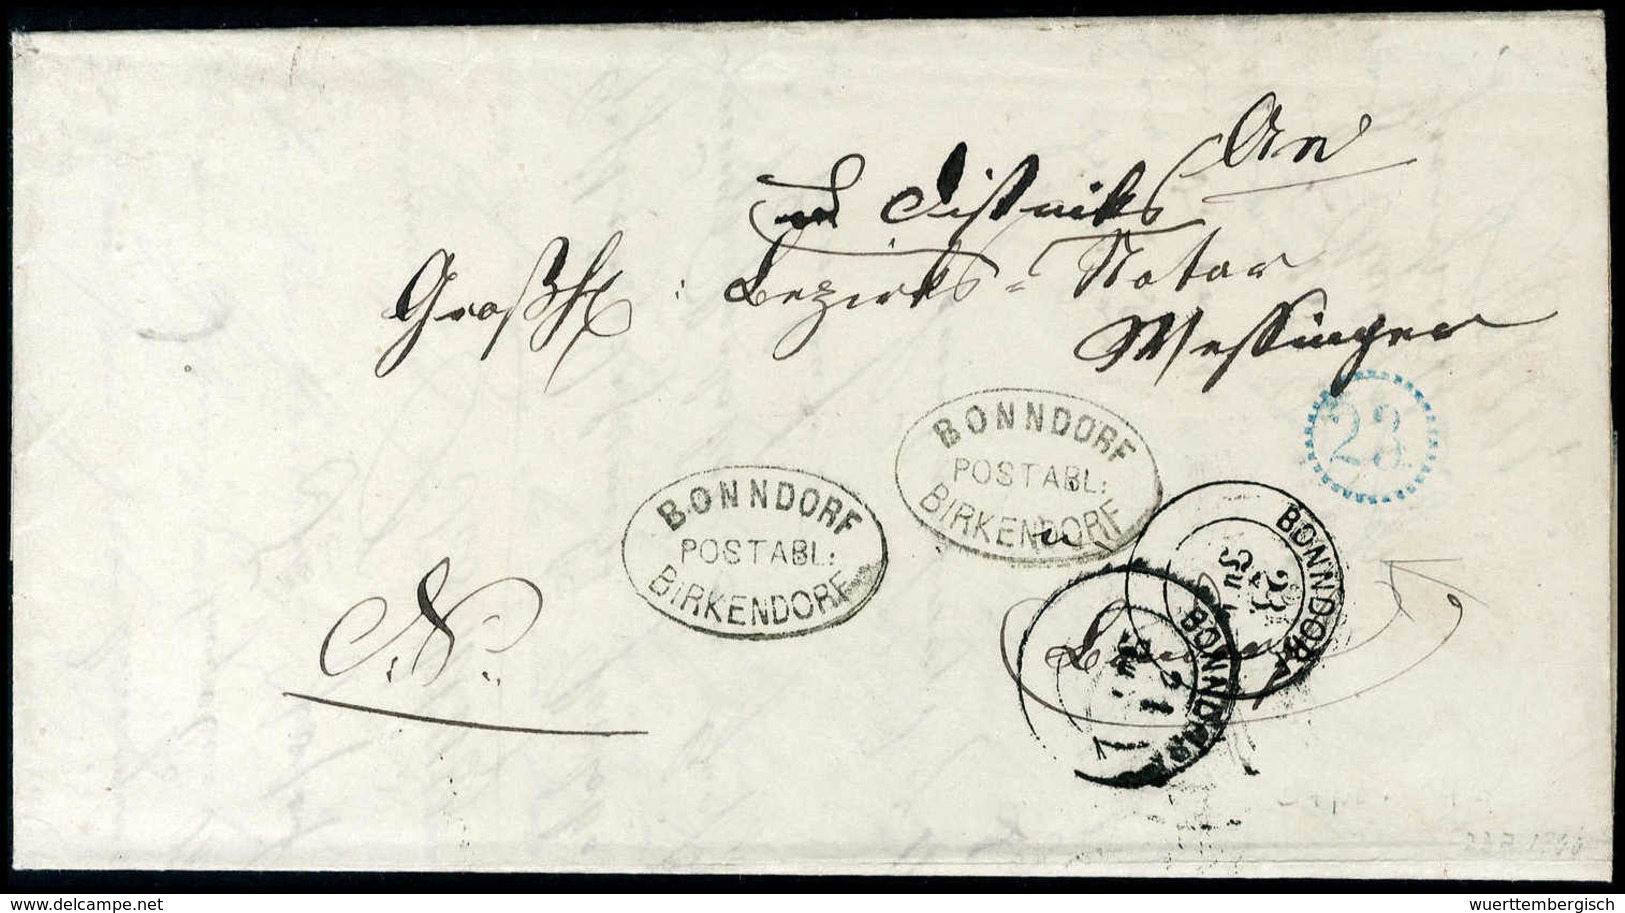 An
Distrikts
Großh : Bezirks = Notar
Messinger
23
BONNDORF
POSTABL:
BIRKENDORF
BONNDORF
POSTABL:
BIRKENDORF
BONNDORF
23
BONNDORF
21
N.
delcampe.net
wuerttembergisch